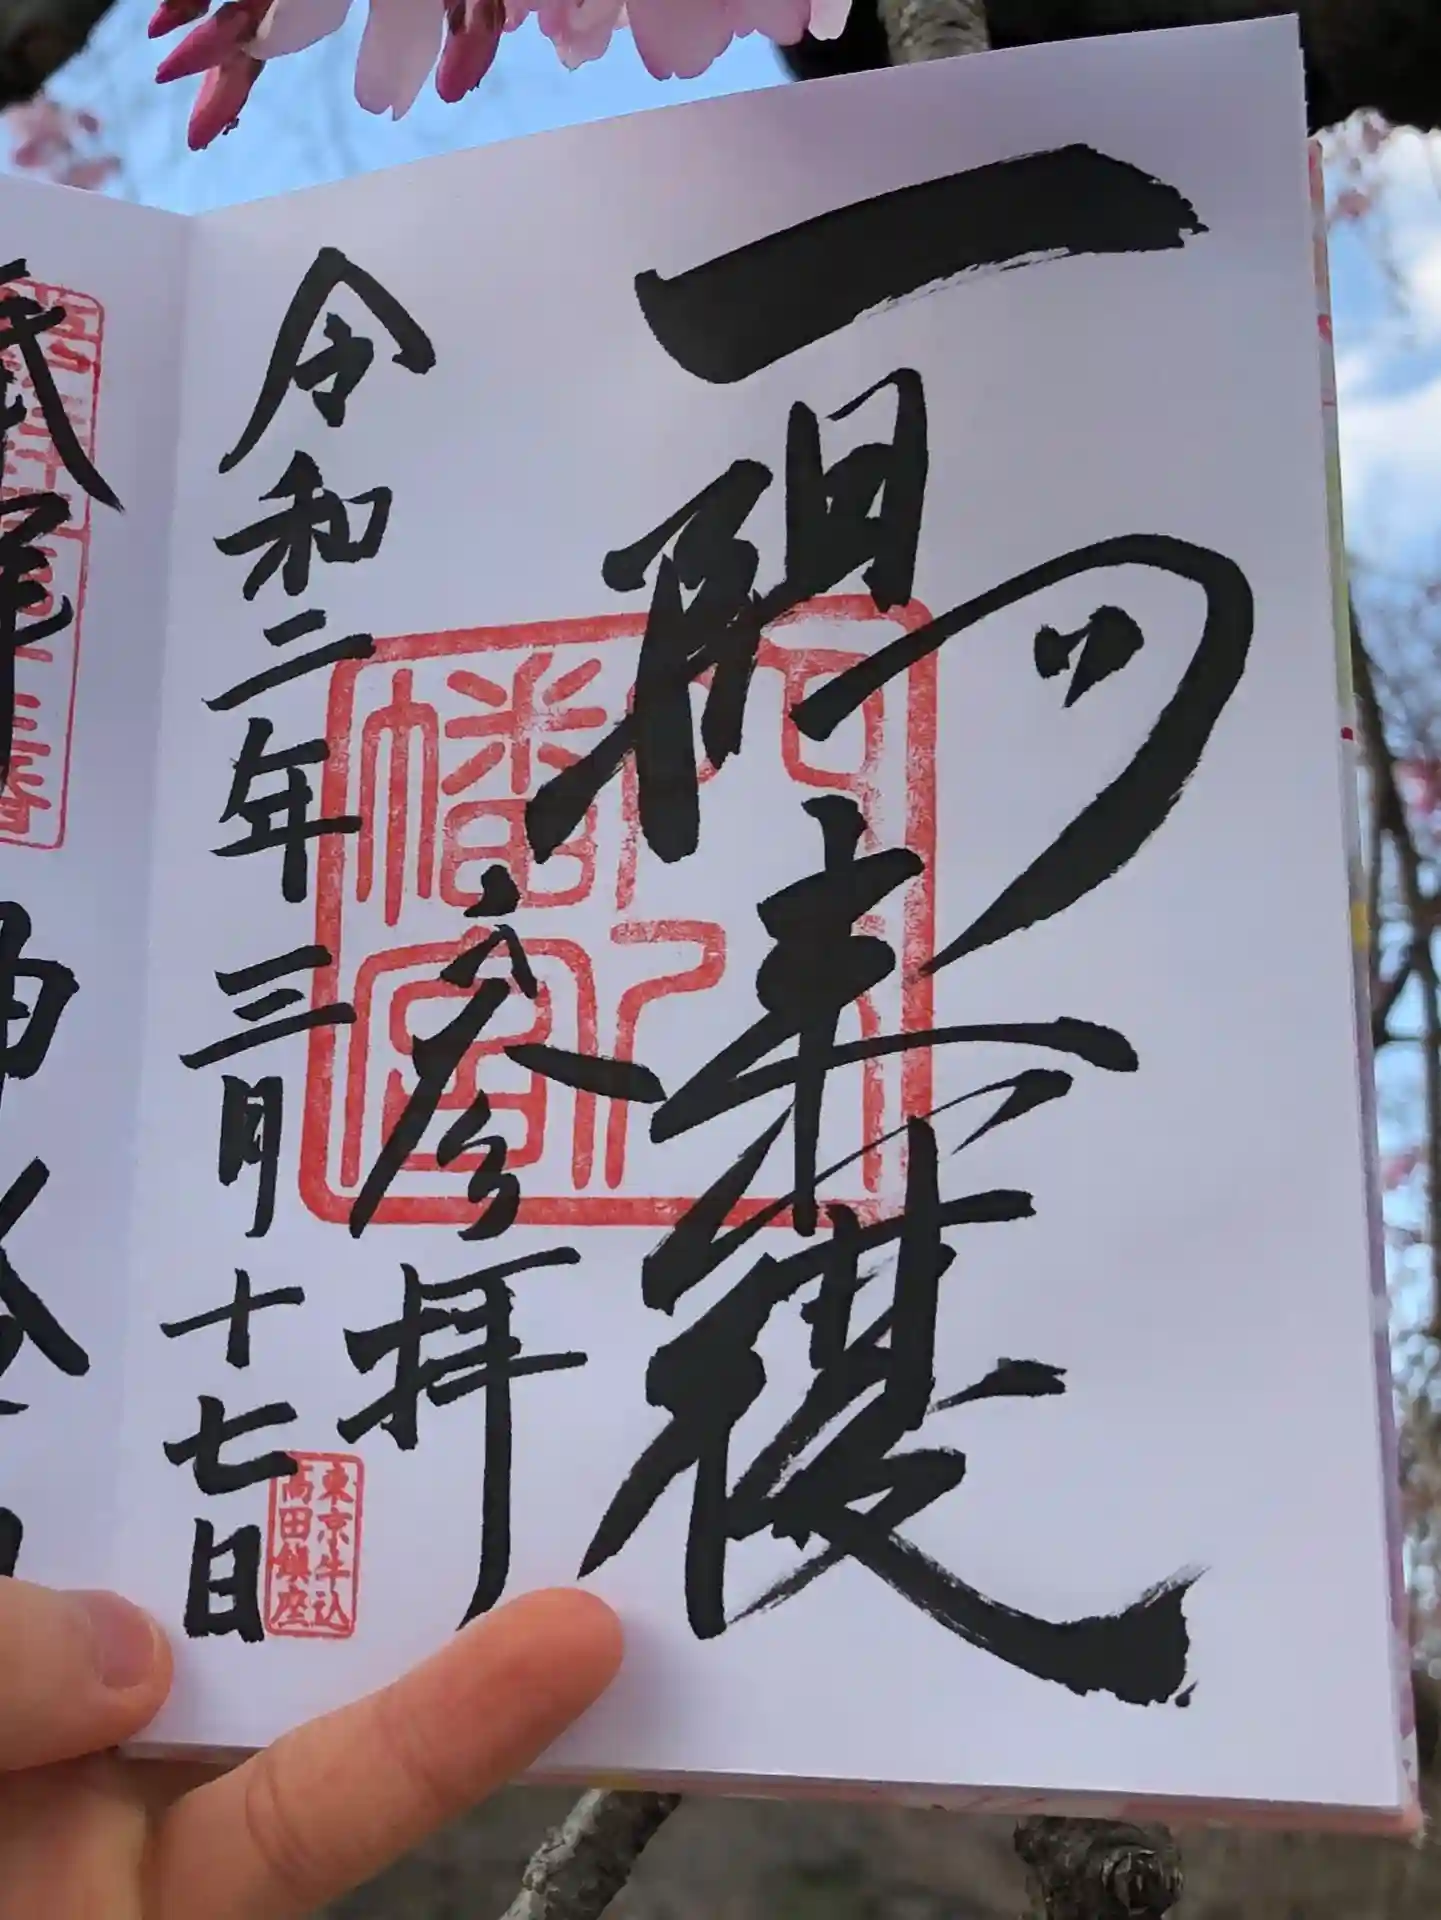 一陽来復
参拝
令和二年三月十七日
穴八
幡宮
東京牛込
高田鎮座